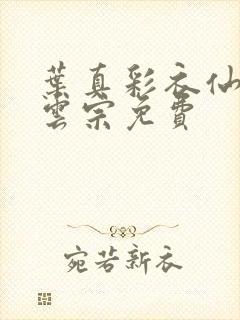 葉真彩衣仙
雲宗免費
宛若新衣